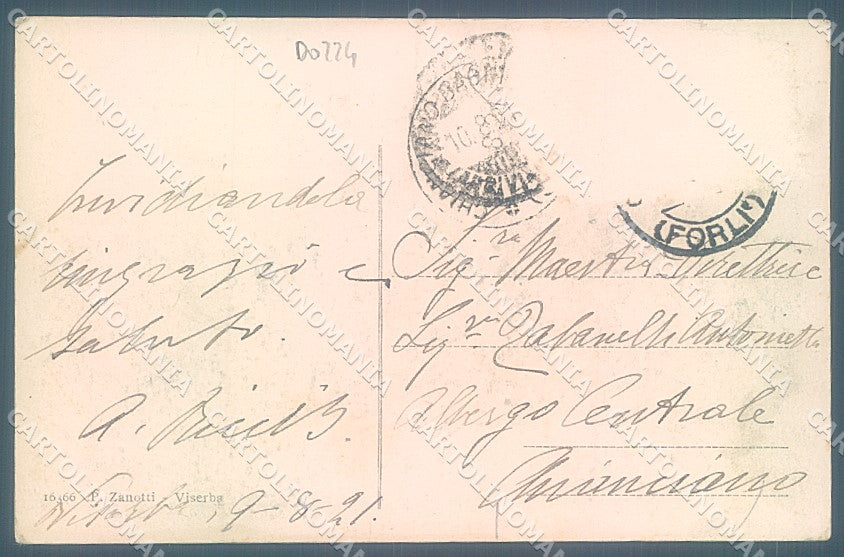 D0774
Invidiandola
ringrazio e
saluto.
A. Ricci B.
16366 P. Zanotti - Viserba
Viserba, 9-8-21.
CHIANCIANO BAGNI
10.8
(FORLI)
Sig.ra Maestra Direttrice
Sig.ra Zabanelli Antonietta
Albergo Centrale
Chianciano
CARTOLINOMANIA